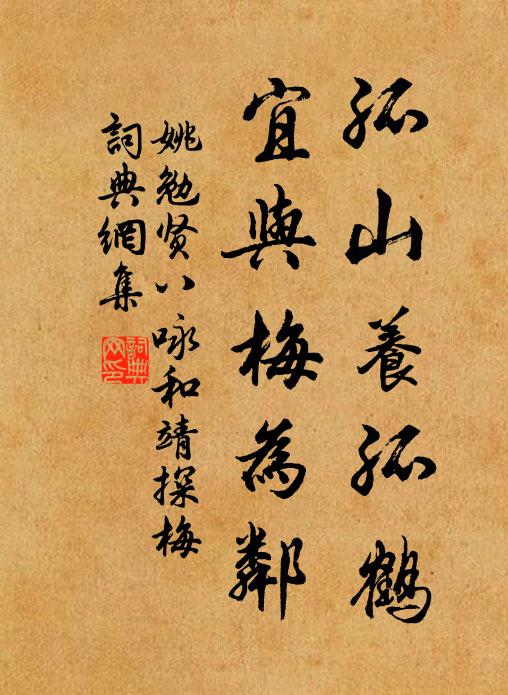 孤山養孤鶴
宜與梅為鄰
姚勉贤八咏和靖探梅
詞典網集
詞典網印